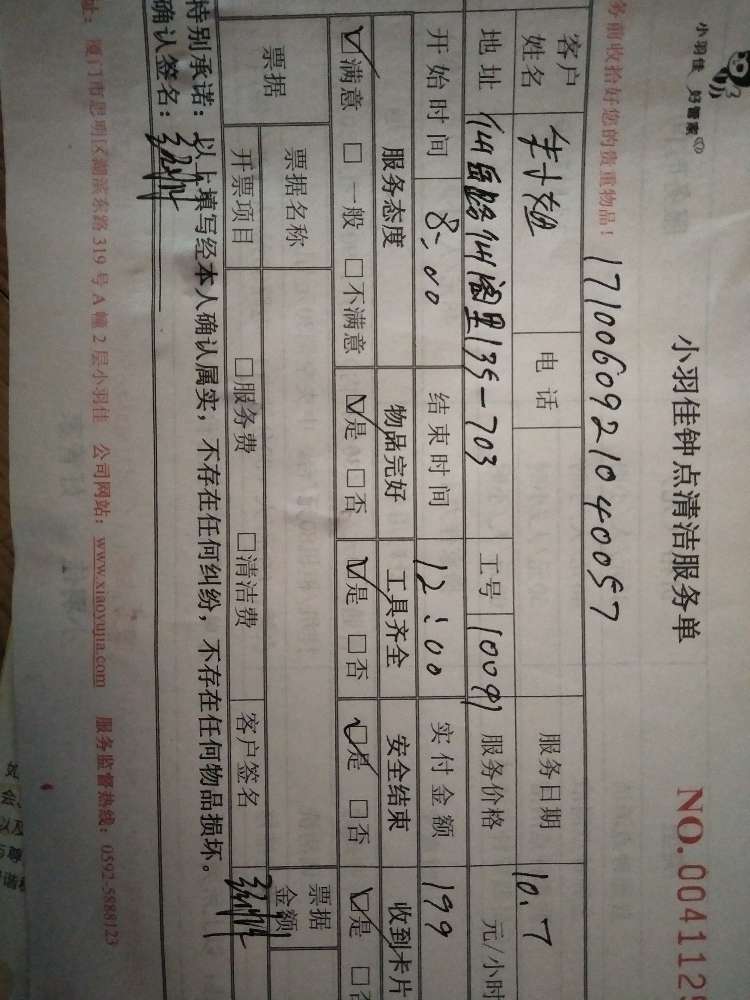 小羽佳 好管家
小羽佳钟点清洁服务单
NO.004112
务前收拾好您的贵重物品！ 1710060921040057
客户姓名 朱小姐 电话 服务日期 10.7
地址 仙岳路仙阁里135-703 工号 10091 服务价格 元/小时
开始时间 8:00 结束时间 12:00 实付金额 199
服务态度 物品完好 工具齐全 安全结束 收到卡片
☑满意 □一般 □不满意 ☑是 □否 ☑是 □否 ☑是 □否 ☑是 □否
票据 票据名称 票据金额
开票项目 □服务费 □清洁费 客户签名
特别承诺：以上填写经本人确认属实，不存在任何纠纷，不存在任何物品损坏。
确认签名：
址：厦门市思明区湖滨东路319号A幢2层小羽佳 公司网站：www.xiaoyujia.com 服务监督热线：0592-5888123